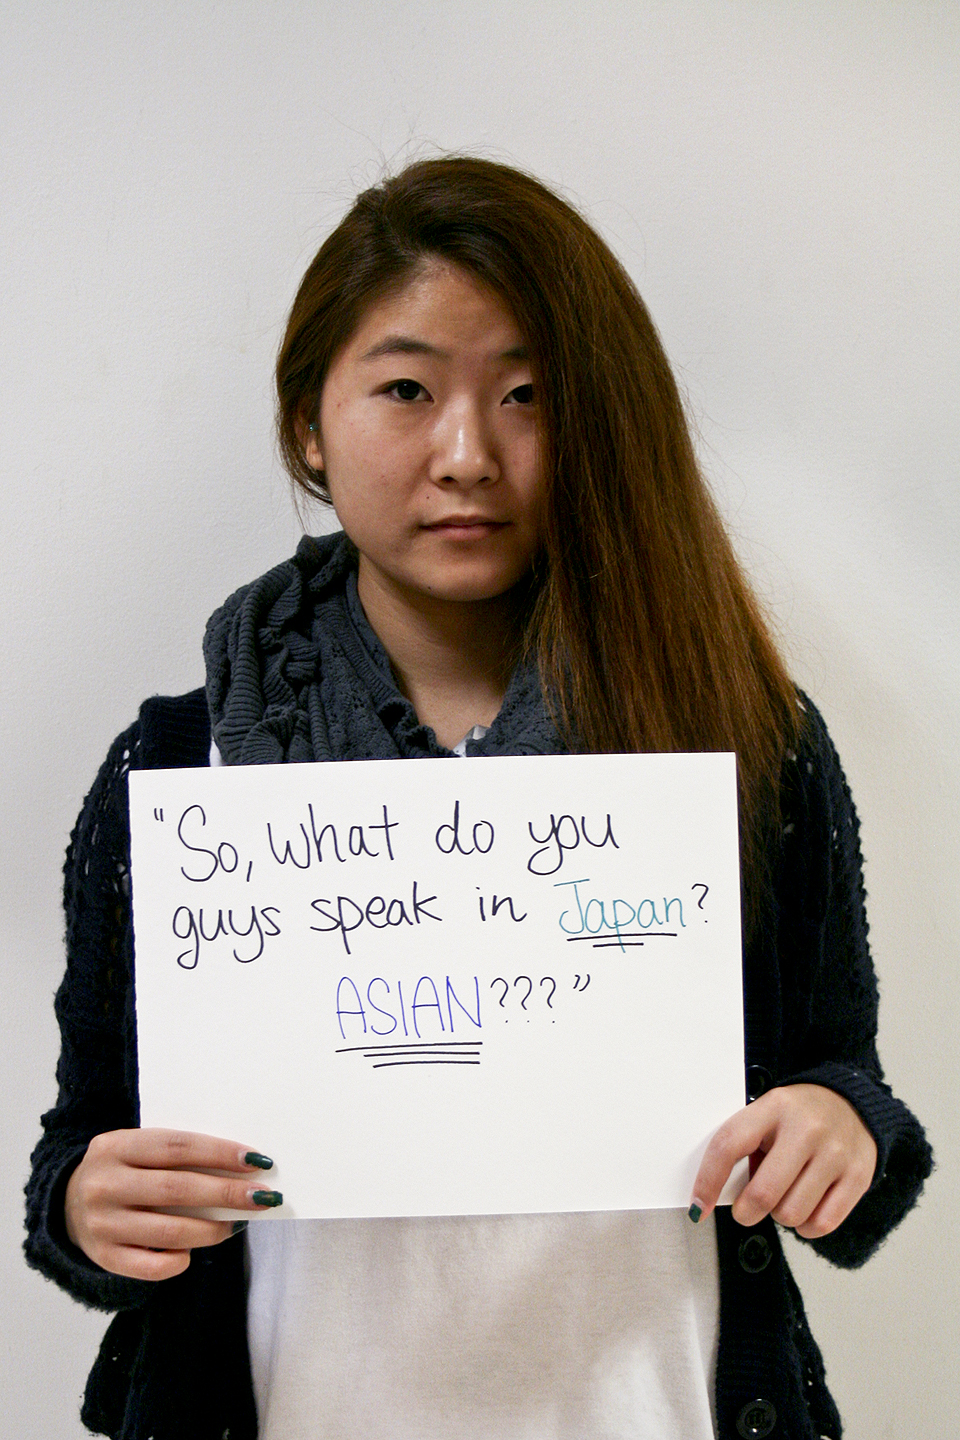 "So, what do you
guys speak in Japan?
ASIAN???"